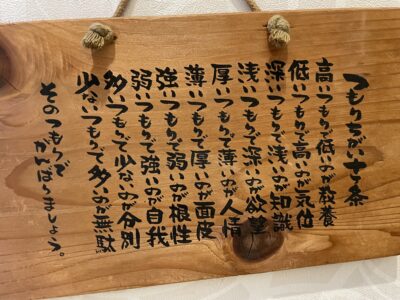 つもりちがい十ケ条
高いつもりで低いのが教養
低いつもりで高いのが気位
深いつもりで浅いのが知識
浅いつもりで深いのが欲望
厚いつもりで薄いのが人情
薄いつもりで厚いのが面皮
強いつもりで弱いのが根性
弱いつもりで強いのが自我
多いつもりで少ないのが分別
少ないつもりで多いのが無駄
そのつもりで
がんばりましょう。